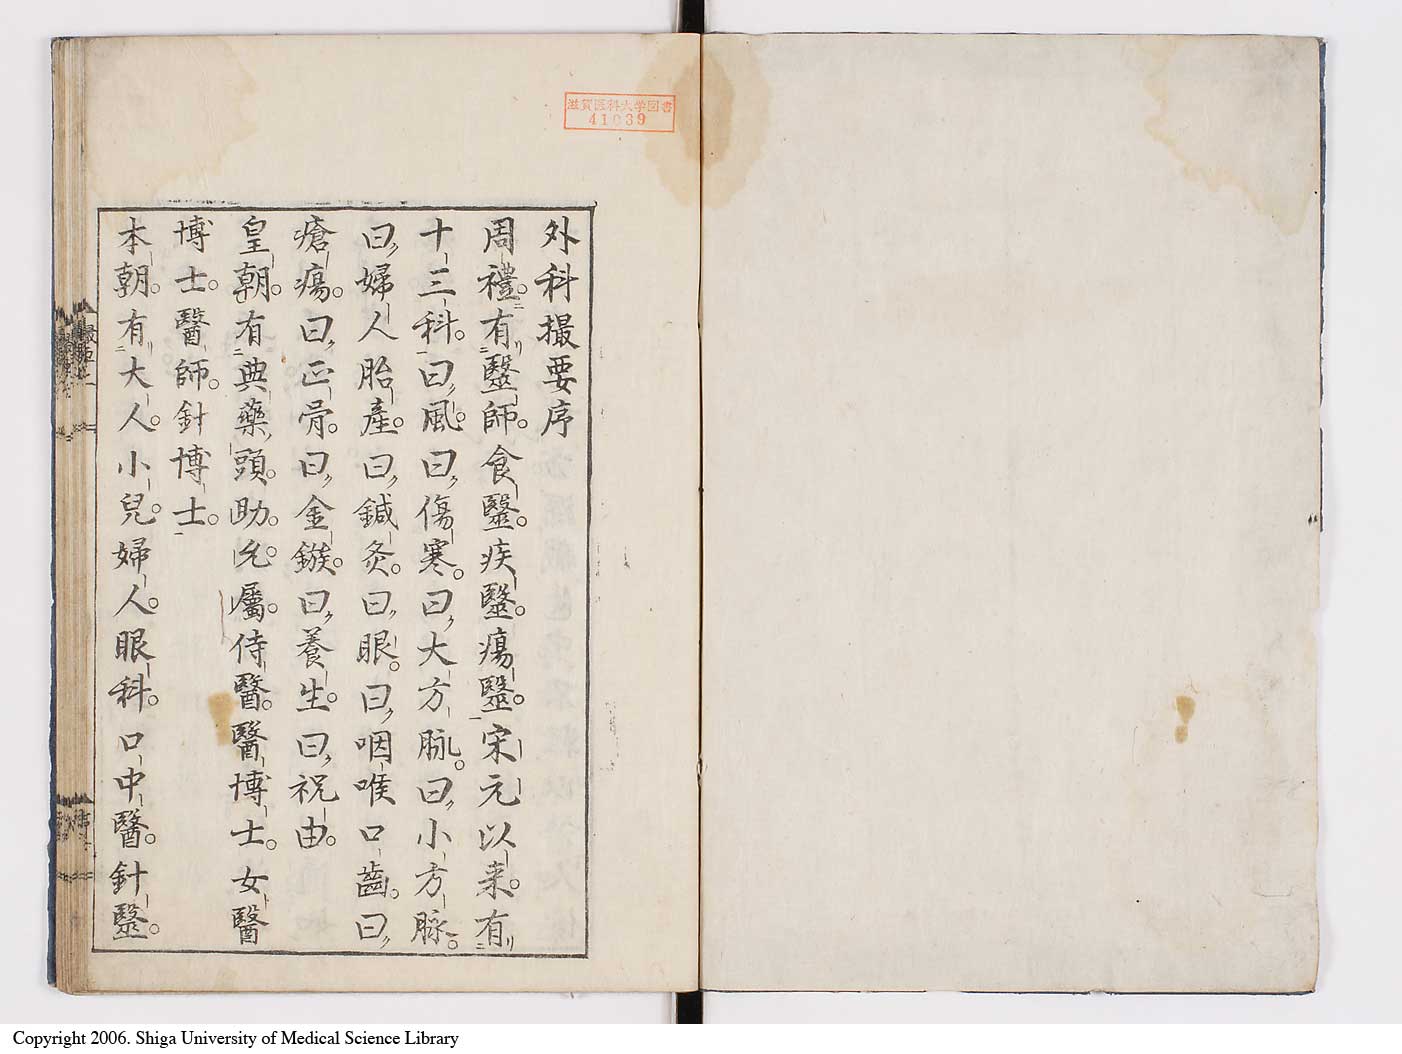 滋賀医科大学図書
41039
外科撮要序
周禮有毉師食毉疾毉瘍毉宋元以来有
十三科曰風曰傷寒曰大方脉曰小方脉
曰婦人胎產曰鍼灸曰眼曰咽喉口齒曰
瘡瘍曰正骨曰金鏃曰養生曰祝由
皇朝有典藥頭助允屬侍醫醫博士女醫
博士醫師針博士
本朝有大人小兒婦人眼科口中醫針毉
Copyright 2006. Shiga University of Medical Science Library